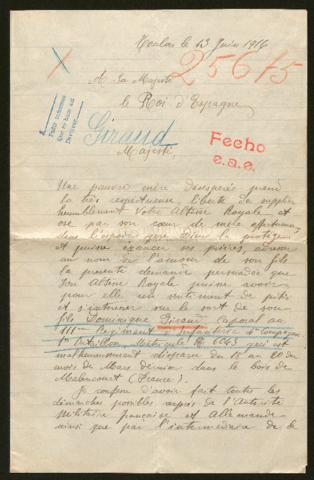 Toulon le 13 Juin 1916
25675
A Sa Majesté
le Roi d'Espagne
Pedir informes
Giraud
Fecho
e.a.a.
Majesté,
Une pauvre mère désespérée prend
la très respectueuse liberté de supplier
humblement Votre Altesse Royale et
ose par son cœur de mère affectueuse
dans l'espoir que Dieu la protège
et puisse exaucer ses prières adresse
au nom de l'amour de son fils
la présente demande persuadée que
Son Altesse Royale puisse avoir
pour elle un sentiment de pitié
et s'intéresser sur le sort de son
fils Dominique Giraud Caporal au
111e Régiment d'Infanterie 4e Compagnie
1er Bataillon Matricule 6463 qui est
malheureusement disparu du 18 au 20 du
mois de Mars dernier dans le bois de
Malancourt (France).
Je confesse d'avoir fait toutes les
démarches possibles auprès de l'Autorité
Militaire française et Allemande
ainsi que par l'intermédiaire de la